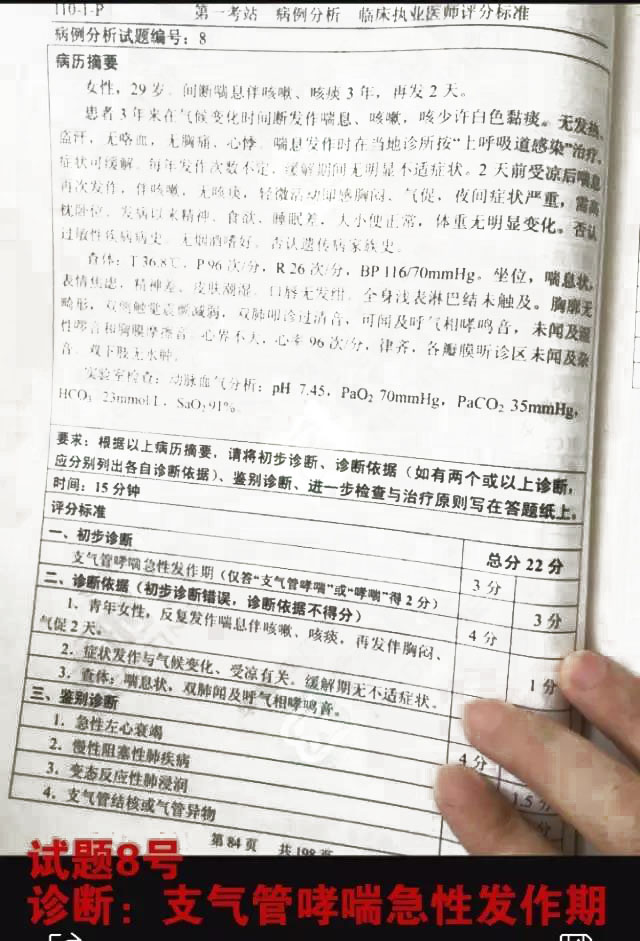 110-1-P 第一考站 病例分析 临床执业医师评分标准
病例分析试题编号：8
病历摘要
女性，29岁。间断喘息伴咳嗽、咳痰3年，再发2天。
患者3年来在气候变化时间断发作喘息、咳嗽，咳少许白色黏痰。无发热、
盗汗，无咯血，无胸痛、心悸。喘息发作时在当地诊所按“上呼吸道感染”治疗，
症状可缓解。每年发作次数不定，缓解期间无明显不适症状。2天前受凉后喘息
再次发作，伴咳嗽，无咳痰，轻微活动即感胸闷、气促，夜间症状严重，需高
枕卧位。发病以来精神、食欲、睡眠差，大小便正常，体重无明显变化。否认
过敏性疾病病史。无烟酒嗜好。否认遗传病家族史。
查体：T 36.8℃，P 96次/分，R 26次/分，BP 116/70mmHg。坐位，喘息状，
表情焦虑，精神差。皮肤潮湿。口唇无发绀。全身浅表淋巴结未触及。胸廓无
畸形，双侧触觉震颤减弱，双肺叩诊过清音，可闻及呼气相哮鸣音，未闻及湿
性啰音和胸膜摩擦音。心界不大，心率96次/分，律齐，各瓣膜听诊区未闻及杂
音。双下肢无水肿。
实验室检查：动脉血气分析：pH 7.45，PaO₂ 70mmHg，PaCO₂ 35mmHg，
HCO₃⁻ 23mmol/L，SaO₂ 91%。
要求：根据以上病历摘要，请将初步诊断、诊断依据（如有两个或以上诊断，
应分别列出各自诊断依据）、鉴别诊断、进一步检查与治疗原则写在答题纸上。
时间：15分钟
评分标准 总分22分
一、初步诊断 3分
支气管哮喘急性发作期（仅答“支气管哮喘”或“哮喘”得2分） 3分
二、诊断依据（初步诊断错误，诊断依据不得分） 4分
1．青年女性，反复发作喘息伴咳嗽、咳痰，再发伴胸闷、
气促2天。 1分
2．症状发作与气候变化、受凉有关。缓解期无不适症状。
3．查体：喘息状，双肺闻及呼气相哮鸣音。
三、鉴别诊断 4分
1．急性左心衰竭 1.5分
2．慢性阻塞性肺疾病 分
3．变态反应性肺浸润
4．支气管结核或气管异物
第84页 共198页
试题8号
诊断：支气管哮喘急性发作期